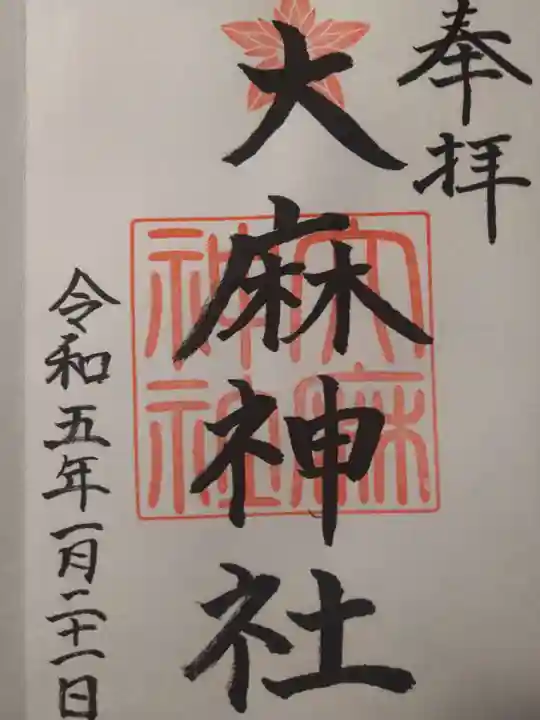 奉拝
大麻神社
大麻神社
令和五年一月二十一日